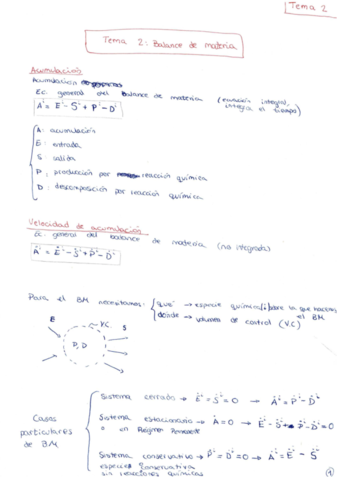 Tema 2
Tema 2: Balance de materia
Acumulación
Acumulación
Ec. general del Balance de materia (ecuación integral,
integra el tiempo)
Aⁱ = Eⁱ - Sⁱ + Pⁱ - Dⁱ
A: acumulación
E: entrada
S: salida
P: producción por reacción química
D: descomposición por reacción química
Velocidad de acumulación
Ec. general del balance de materia (no integrada)
Ȧⁱ = Ėⁱ - Ṡⁱ + Ṗⁱ - Ḋⁱ
Para el BM necesitamos: qué → especie química/i sobre la que hacemos el BM
dónde → volumen de control (V.C)
E
V.C.
S
P, D
Casos
particulares
de BM
Sistema cerrado → Ėⁱ = Ṡⁱ = 0 → Ȧⁱ = Ṗⁱ - Ḋⁱ
Sistema estacionario → Ȧ = 0 → Ėⁱ - Ṡⁱ + Ṗⁱ - Ḋⁱ = 0
= en Régimen Permanente
Sistema conservativo → Ṗⁱ = Ḋⁱ = 0 → Ȧⁱ = Ėⁱ - Ṡⁱ
especie conservativa
sin reacciones químicas
1